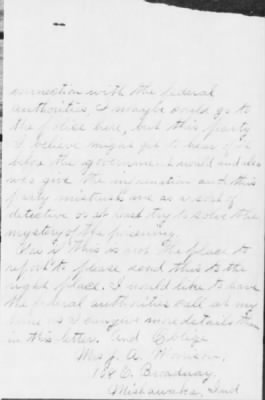 connection with the federal
authorities, I maybe could go to
the police here, but this party
I believe might get to hear of it
before the government would and also
who give the information and this
party mistrusts me as a sort of
detective or at least try to solve the
mystery of the poisoning.
this is not the place to
report to please send this to the
right place. I would like to have
the federal authorities call at my
home as I can give more details than
in this letter. and Oblige
Mrs J. A.
E. Broadway,
Mishawaka, Ind